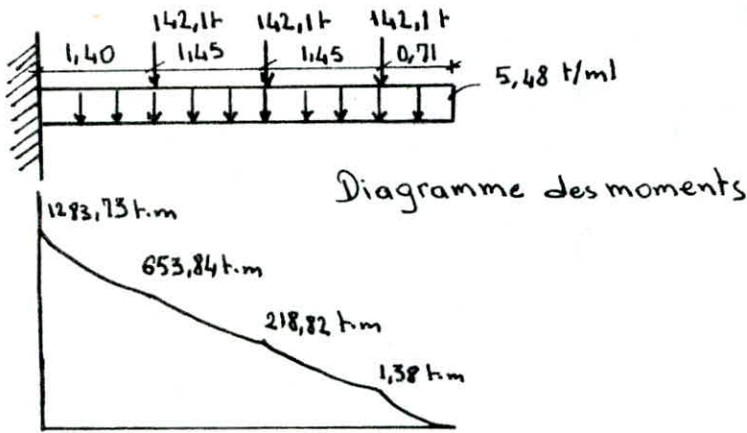 142,1t 142,1t 142,1t
1,40 1,45 1,45 0,71
5,48 t/ml
Diagramme des moments
1283,73 t.m
653,84 t.m
218,82 t.m
1,38 t.m